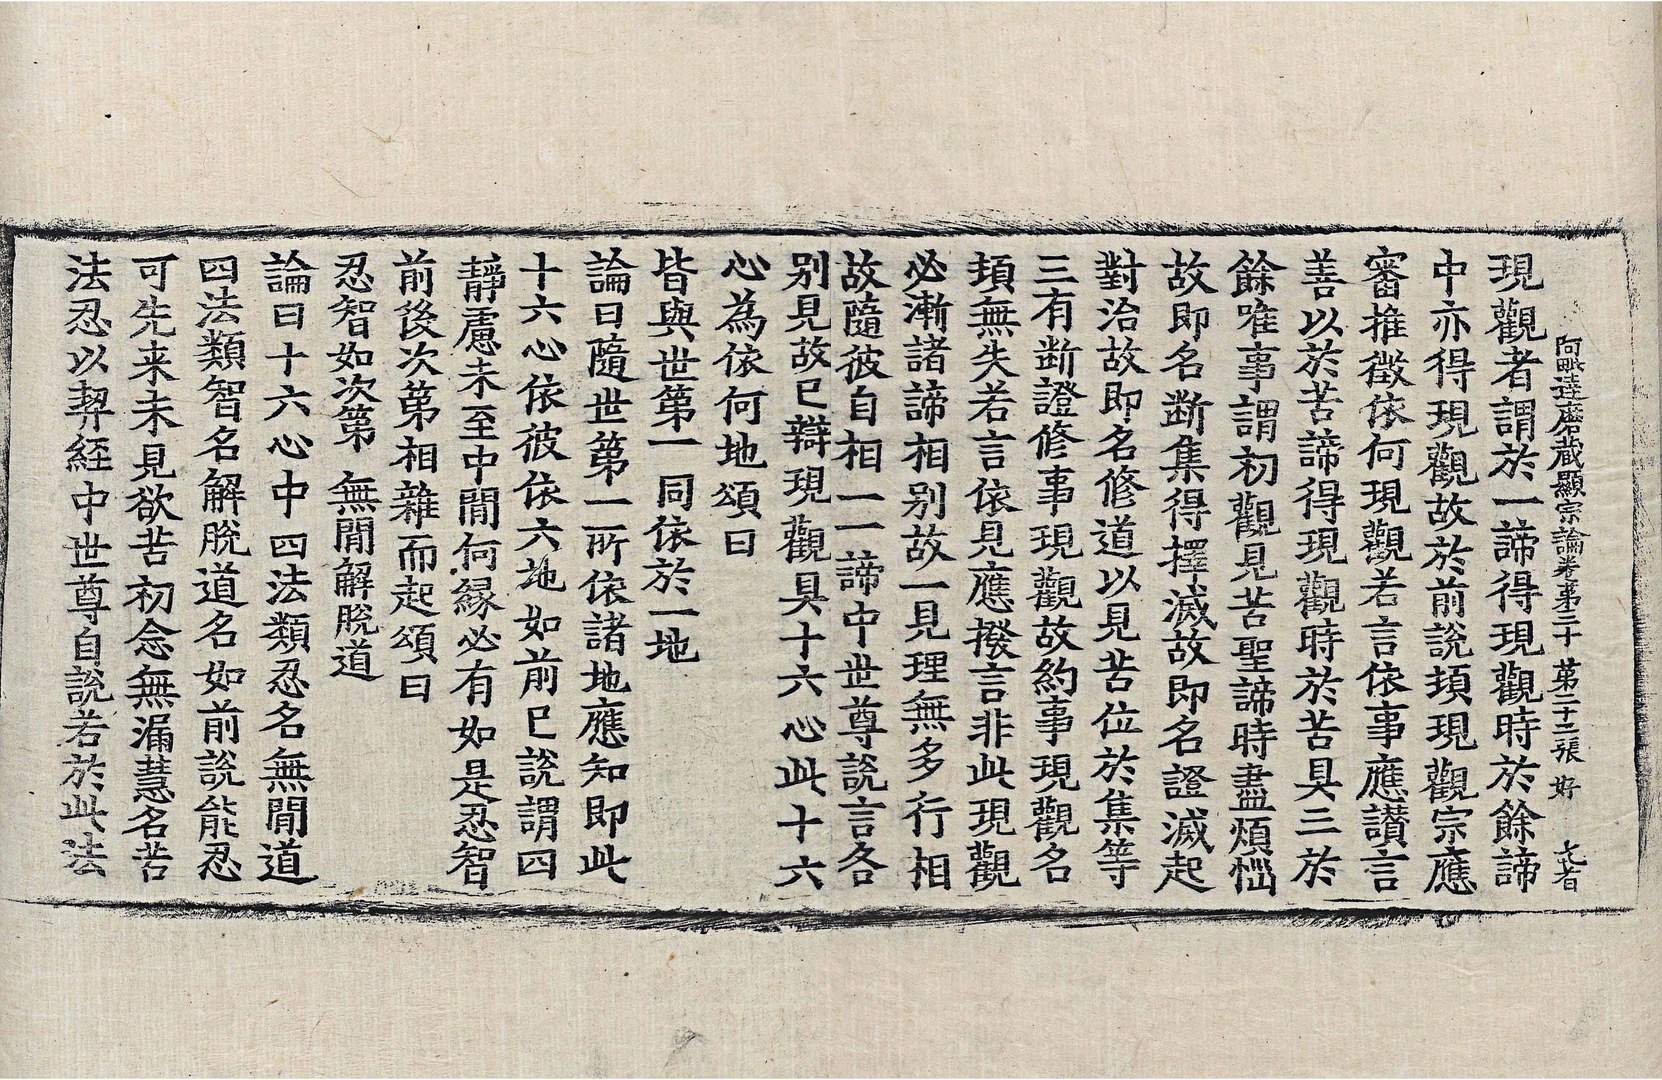 阿毗達磨藏顯宗論卷第三十 第二十二張 好
現觀者謂於一諦得現觀時於餘諦
中亦得現觀故於前說頊現觀宗應
審推徵依何現觀若言依事應讃言
善以於苦諦得現觀時於苦具三於
餘唯事謂初觀見苦聖諦時盡煩惱
故即名断集得擇滅故即名證滅起
對治故即名修道以見苦位於集等
三有断證修事現觀故約事現觀名
頊無失若言依見應撥言非此現觀
必漸諸諦相别故一見理無多行相
故隨彼自相一一諦中世尊說言各
别見故已辯現觀具十六心此十六
心為依何地頌曰
皆與世第一 同依於一地
論曰隨世第一所依諸地應知即此
十六心依彼依六地如前已說謂四
靜慮未至中間何緣必有如是忍智
前後次第相雜而起頌曰
忍智如次第 無間解脫道
論曰十六心中四法類忍名無間道
四法類智名解脫道名如前說能忍
可先来未見欲苦初念無漏慧名苦
法忍以契經中世尊自說若於此法